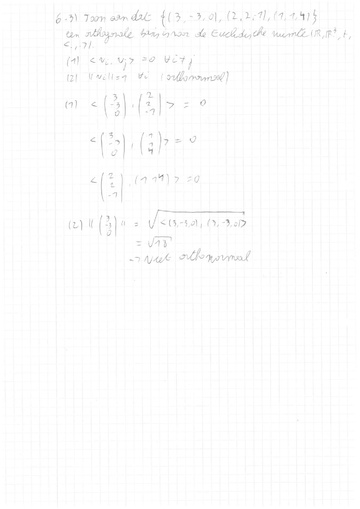 6.3) Toon aan dat: {(3, -3, 0), (2, 2, -1), (1, 1, 4)}
een orthogonale basis is voor de Euclidische ruimte (ℝ, ℝ³, +, <.,.>).
(1) <vᵢ, vⱼ> = 0 ∀ i ≠ j
(2) ||vᵢ|| = 1 ∀i (orthonormaal)
(1) <(3 -3 0), (2 2 -1)> = 0
<(3 -3 0), (1 1 4)> = 0
<(2 2 -1), (1 1 4)> = 0
(2) ||(3 -3 0)|| = √<(3,-3,0), (3,-3,0)>
= √18
→ Niet orthonormaal